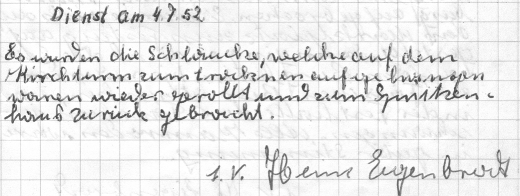 Dienst am 4.7.52
Es wurden die Schläuche, welche auf dem
Kirchturm zum trocknen aufgehangen
waren wieder gerollt und zum Spritzen-
haus zurück gebracht.
i.V. Heine Eugenbrodt